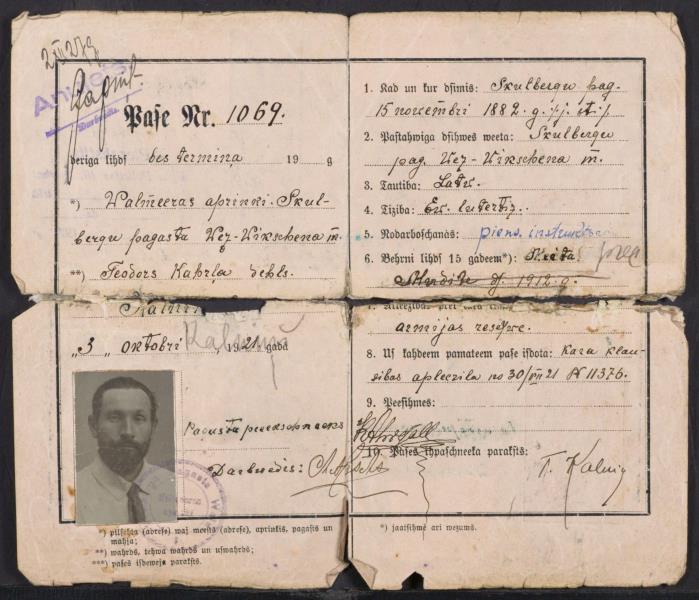 Pase Nr. 1069.
deriga lihds bes termiņa 19 g
*) Walmeeras aprinķi. Skul-
bergu pagasta Wez-Wikschena m.
**) Teodors Kahrļa dehls.
"3" oktobri, 1921 gadā
Pagasta preekschneeks
Darbwedis:
*) pilsehta (adrese) waj meests (adrese), aprinķis, pagasts un
mahja;
**) wahrds, tehwa wahrds un uswahrds;
***) pases isdeweja paraksts.
1. Kad un kur dsimis: Skulbergu pag.
15 novembri 1882. g.
2. Pastahwiga dsihwes weeta: Skulbergu
pag. Wez-Wikschena m.
3. Tautiba: Latw.
4. Tiziba: Ew. lutertiz.
5. Nodarboschanās: piens. instruktors
6. Behrni lihds 15 gadeem*):
1912. g.
armijas reserwe.
8. Us kahdeem pamateem pase isdota: Kara klau-
sibas apleeziba no 30/VII 21 № 11376.
9. Peesihmes:
10. Pases ihpaschneeka paraksts:
T. Kalniņ
*) jaatsihmē ari wezums.